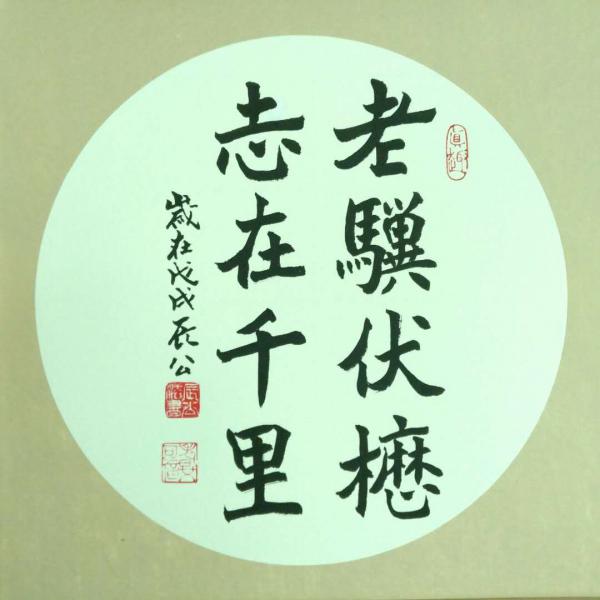 老驥伏櫪
志在千里
歲在戊戌辰公
真趣